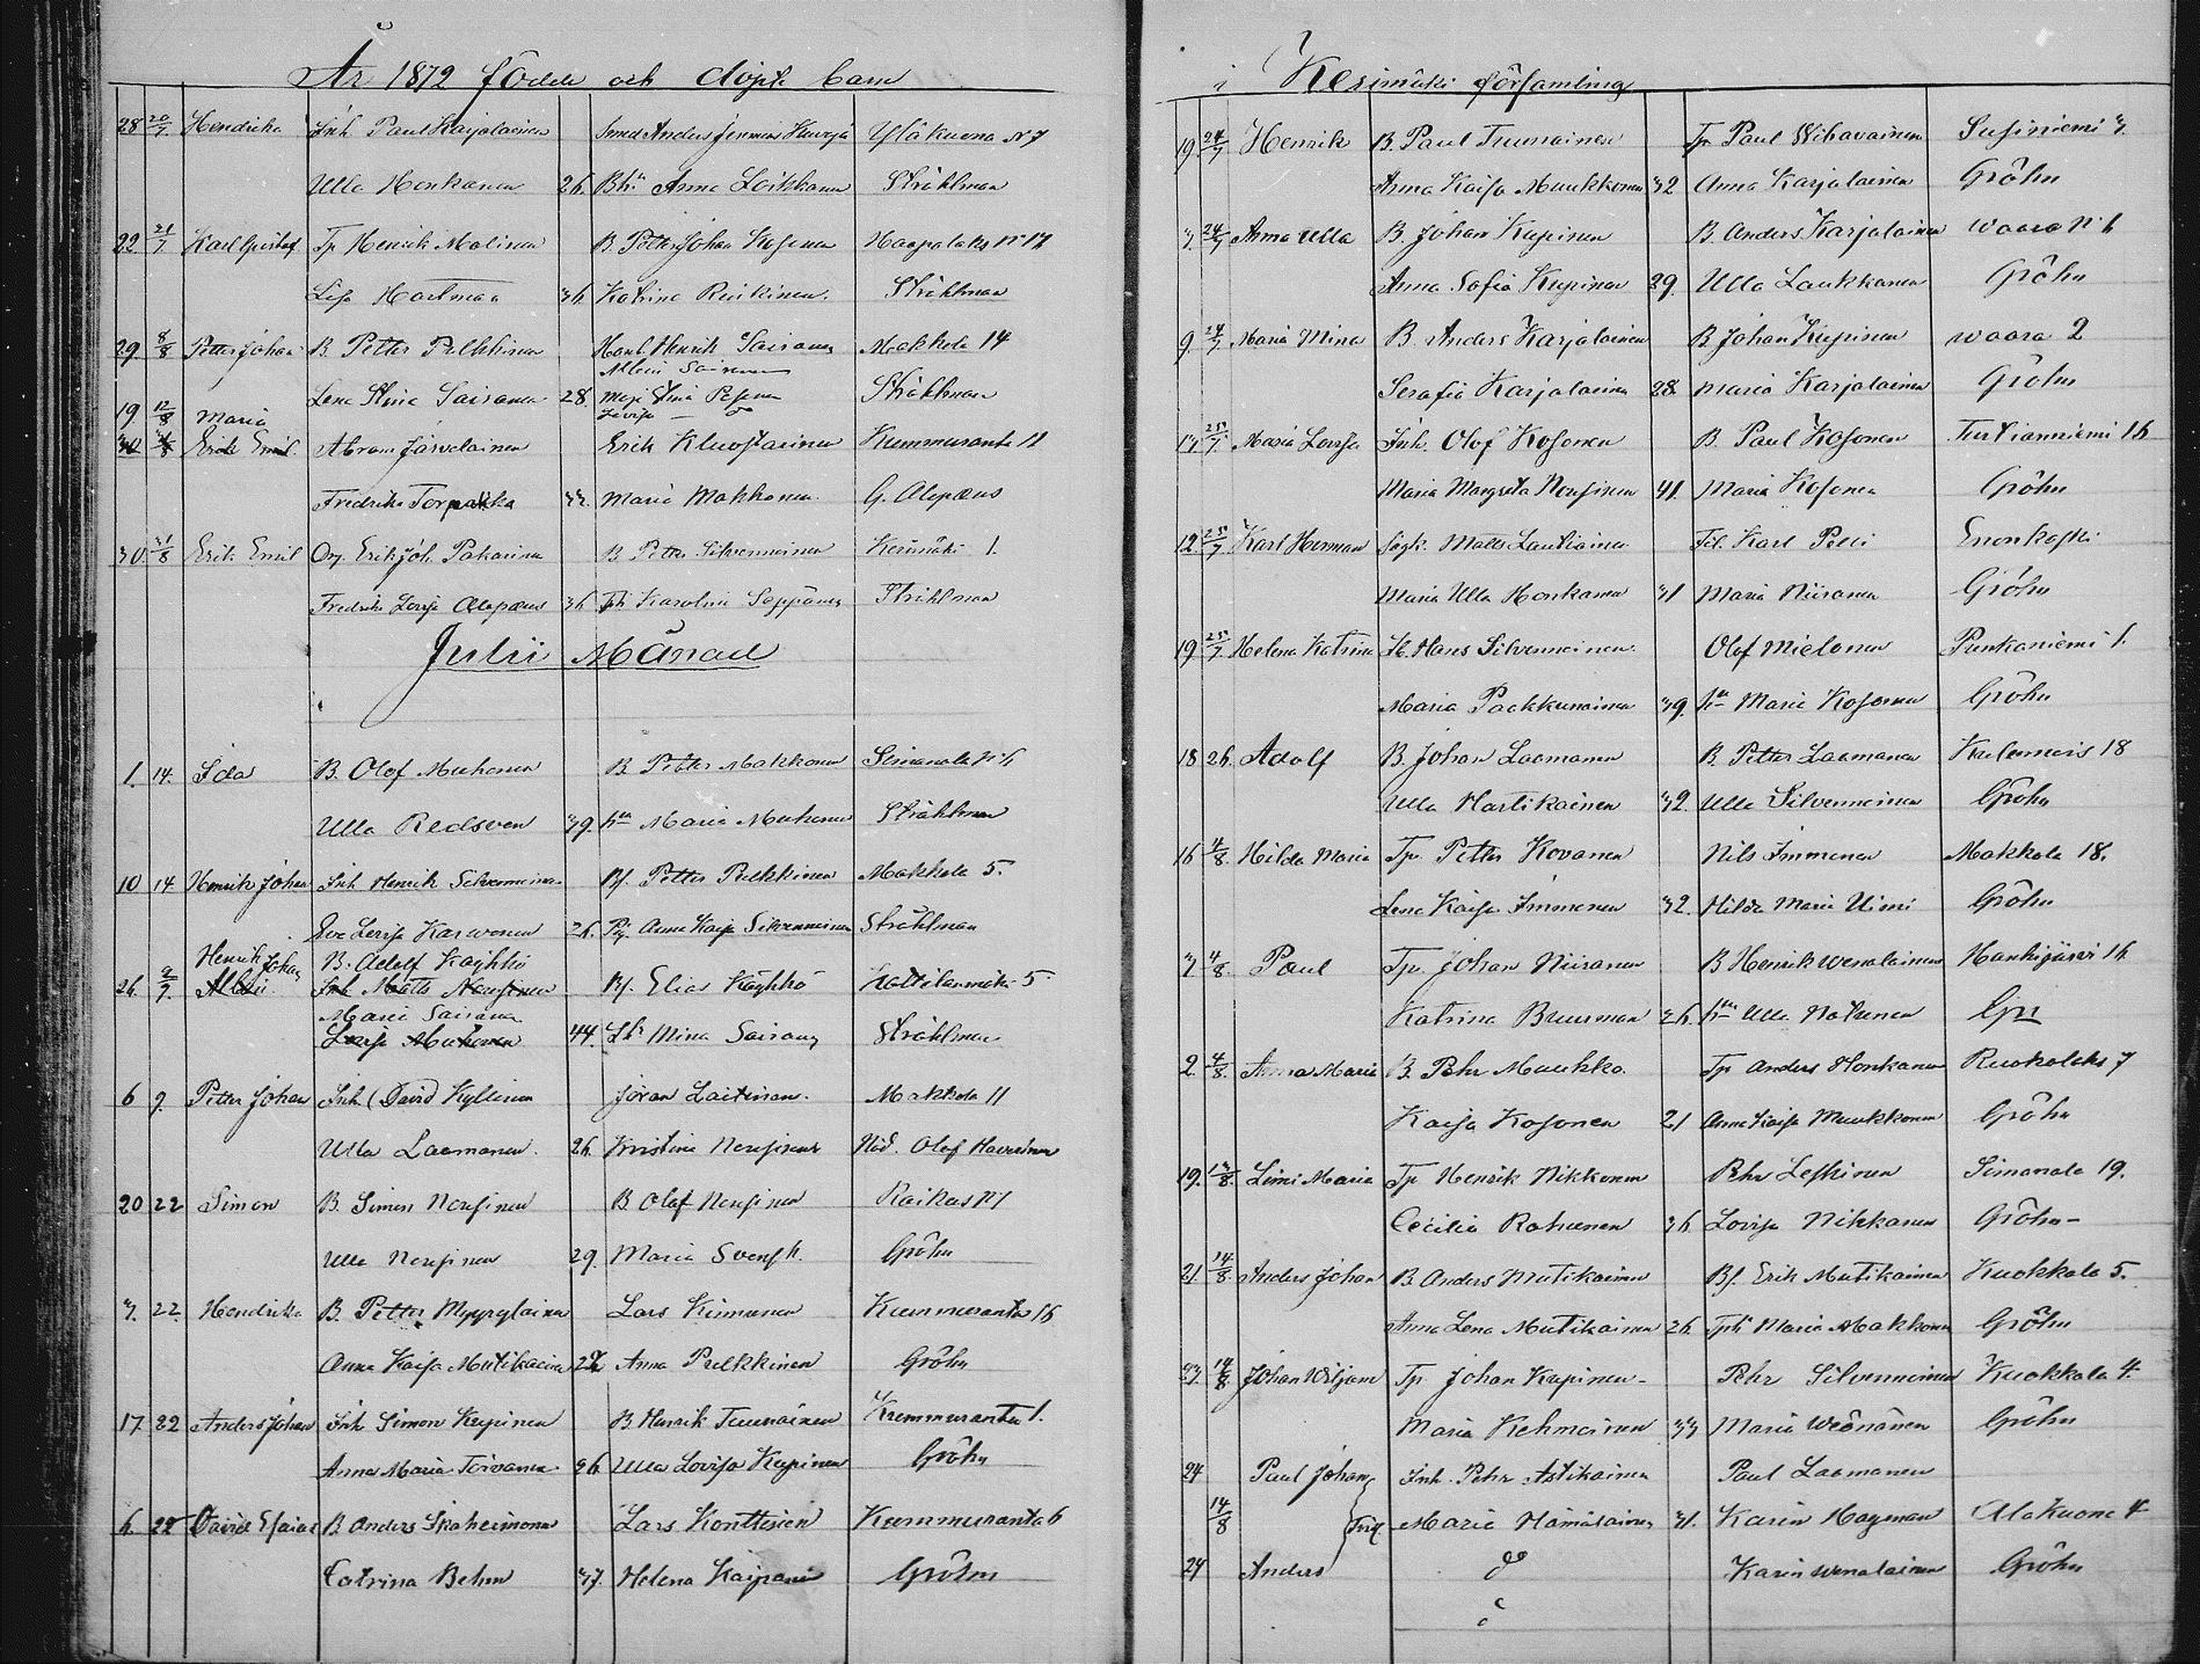 År 1872 födde och döpte barn
28 20/7 Hendrika Inh Paul Karjalainen Smed Anders Ylakuona N 7
Ulla Honkanen 26. Anna Loikkanen Stråhlman
22 21/7 Karl Gustaf Tp Henrik Malinen B. Petter Johan Kosonen Haapalaks N 17
Lisa Hartman 36 Katrina Ruikinen. Stråhlman
29 8/8 Petter Johan B. Petter Pulkkinen Henrik Sairanen Makkola 14
Albin Sairanen
Lena Stina Sairanen 28. Stina Pesonen Stråhlman
19. 12/8 Maria
Erik Emil Abram Järvelainen Erik Kluostarinen Kummuranta 11
Fredrika Torpakka Maria Makkonen G. Alopæus
30. 31/8 Erik Emil Erik Joh. Pakarinen B. Petter Silvenneinen Kerimäki 1.
Fredrika Lovisa Alopæus 36 Karolina Seppänen Stråhlman
Julii Månad
1. 14. Ida B. Olof Muhonen B. Petter Makkonen Simanala N 6
Ulla Redsven 39. Maria Muhonen Stråhlman
10 14 Henrik Johan Inh Henrik Silvenneinen Bf. Petter Pulkkinen Makkola 5.
Eva Lovisa Karvonen 26. Pig. Anna Kaisa Silvenneinen Stråhlman
Henrik Johan B. Adolf Käyhkö
26. 9/7. Albin Inh Matts Nousinen Bf. Elias Käyhkö 5
Maria Sairanen
Lovisa Muhonen 44. Mina Sairanen Stråhlman
6 9. Petter Johan Inh. David Kyllinen Jöran Laitinen. Makkola 11
Ulla Laamanen. 26. Kristina Nousinen Nöd. Olof Haverinen
20 22 Simon B. Simon Nousinen B. Olof Nousinen Raikas N 1
Ulla Nousinen 29. Maria Svensk. Gröhn
3. 22. Hendrika B. Petter Myyryläinen Lars Kinnunen Kummuranta 16
Anna Kaisa Mutikainen Anna Pulkkinen Gröhn
17. 22 Anders Johan Inh Simon Kupinen B. Henrik Tuunainen Kummuranta 1.
Anna Maria Toivanen 26 Ulla Lovisa Kupinen Gröhn
6. 22 David Esaias B. Anders Ikäheimonen Lars Konttinen Kummuranta 6
Catrina Behm 37. Helena Kaipanen Gröhn
i Kerimäki församling
19. 24/7 Henrik B. Paul Tuunainen Tp Paul Wihavainen Susiniemi 3.
Anna Kaisa Muukkonen 32 Anna Karjalainen Gröhn
3. 24/7 Anna Ulla B. Johan Kupinen B. Anders Karjalainen Waara N 6
Anna Sofia Kupinen 29. Ulla Laukkanen Gröhn
9. 24/7. Maria Mina B. Anders Karjalainen B Johan Kupinen Waara 2
Serafia Karjalainen 28. Maria Karjalainen Gröhn
17. 25/7. Maria Lovisa Inh. Olof Kosonen B. Paul Kosonen Turtianniemi 16
Maria Margreta Nousinen 41. Maria Kosonen Gröhn
12. 25/7 Karl Herman Matts Lautiainen Karl Pelli Enonkoski
Maria Ulla Honkanen 31 Maria Niiranen Gröhn
19 25/7. Helena Katrina Hans Silvenneinen. Olof Mielonen Punkaniemi 1.
Maria Paekkunainen 39. Maria Kosonen Gröhn
18 26. Adolf B. Johan Laamanen B. Petter Laamanen Kulennois 18
Ulla Hartikainen 32. Ulla Silvenneinen Gröhn
16 4/8. Hilda Maria Tp. Petter Kovanen Nils Immonen Makkola 18.
Lena Kaisa Immonen 32. Hilda Maria Uimi Gröhn
3 4/8. Paul Tp. Johan Niiranen B Henrik Wenalainen Hankijärvi 16
Katrina Bruusman 26. Ulla Natunen Grn
2. 4/8. Anna Maria B. Pehr Muukko. Tp Anders Honkanen Ruokolaks 7
Kaisa Kosonen 21 Anna Kaisa Muukkonen Gröhn
19. 13/8. Limi Maria Tp Henrik Nikkonen Pehr Leskinen Simanala 19.
Cecilia Rahunen 36. Lovisa Nikkanen Gröhn
21. 14/8. Anders Johan B. Anders Mutikainen Bf. Erik Mutikainen Kuokkala 5.
Anna Lena Mutikainen 26. Maria Makkonen Gröhn
23. 14/8 Johan Wiljam Tp. Johan Kupinen Pehr Silvenneinen Kuokkala 4.
Maria Kehmainen 33 Maria Wäänänen Gröhn
24 Paul Johan Inh. Pehr Astikainen Paul Laamanen
14/8 Maria Hämäläinen 31. Karin Hagman Alakuona 4
24 Anders Karin Wenalainen Gröhn